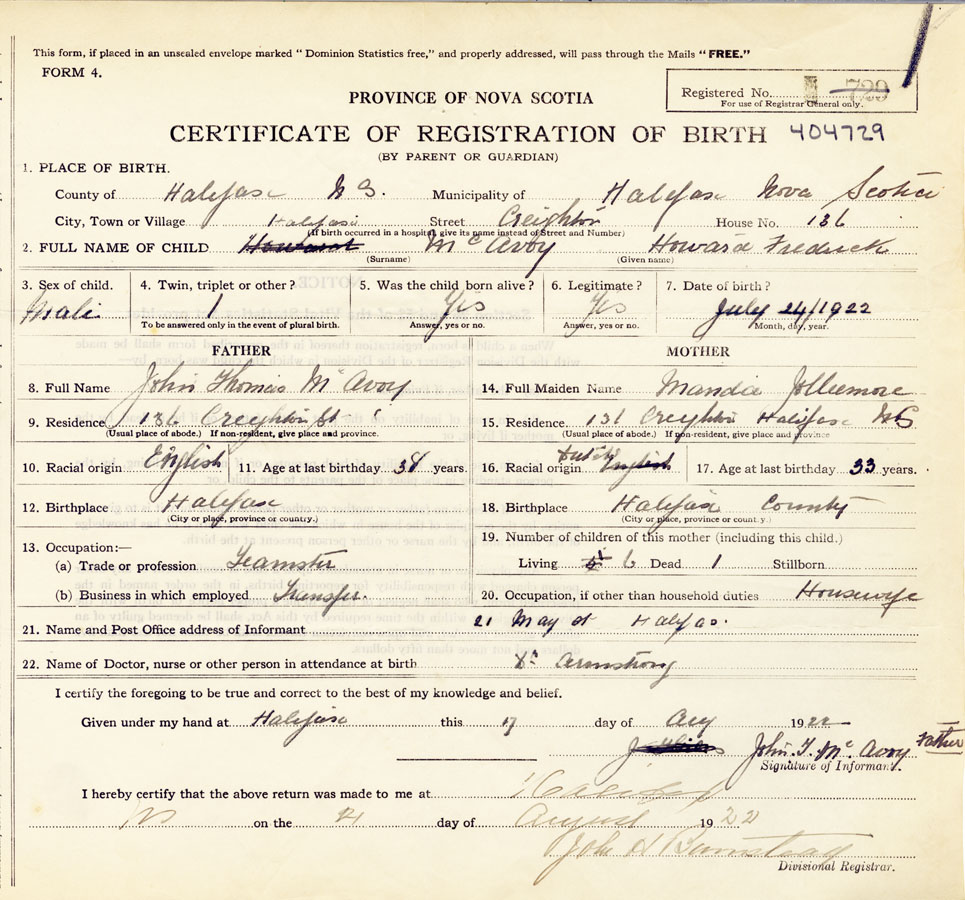 This form, if placed in an unsealed envelope marked "Dominion Statistics free," and properly addressed, will pass through the Mails "FREE."
FORM 4.
Registered No. 729
For use of Registrar General only.
PROVINCE OF NOVA SCOTIA
CERTIFICATE OF REGISTRATION OF BIRTH 404729
(BY PARENT OR GUARDIAN)
1. PLACE OF BIRTH.
County of Halifax N S. Municipality of Halifax Nova Scotia
City, Town or Village Halifax Street Creighton House No. 136
(If birth occurred in a hospital, give its name instead of Street and Number)
2. FULL NAME OF CHILD Howard Mc Avoy Howard Fredrick
(Surname) (Given name)
3. Sex of child. 4. Twin, triplet or other? 5. Was the child born alive? 6. Legitimate? 7. Date of birth?
Male 1 Yes Yes July 24/1922
To be answered only in the event of plural birth. Answer, yes or no. Answer, yes or no. Month, day, year.
FATHER MOTHER
8. Full Name John Thomas Mc Avoy 14. Full Maiden Name Jollimore
9. Residence 136 Creighton St 15. Residence 136 Creighton Halifax NS
(Usual place of abode.) If non-resident, give place and province. (Usual place of abode.) If non-resident, give place and province
10. Racial origin English 11. Age at last birthday 38 years. 16. Racial origin English 17. Age at last birthday 33 years.
12. Birthplace Halifax 18. Birthplace Halifax County
(City or place, province or country.) (City or place, province or country.)
13. Occupation:— 19. Number of children of this mother (including this child.)
(a) Trade or profession Teamster Living 6 Dead 1 Stillborn
(b) Business in which employed Transfer. 20. Occupation, if other than household duties Housewife
21. Name and Post Office address of Informant 21 May st Halifax.
22. Name of Doctor, nurse or other person in attendance at birth Dr Armstrong
I certify the foregoing to be true and correct to the best of my knowledge and belief.
Given under my hand at Halifax this 17 day of Aug 1922
John. T. Mc Avoy Father
Signature of Informant.
I hereby certify that the above return was made to me at Halifax
NS on the 21 day of August 1922
John H
Divisional Registrar.